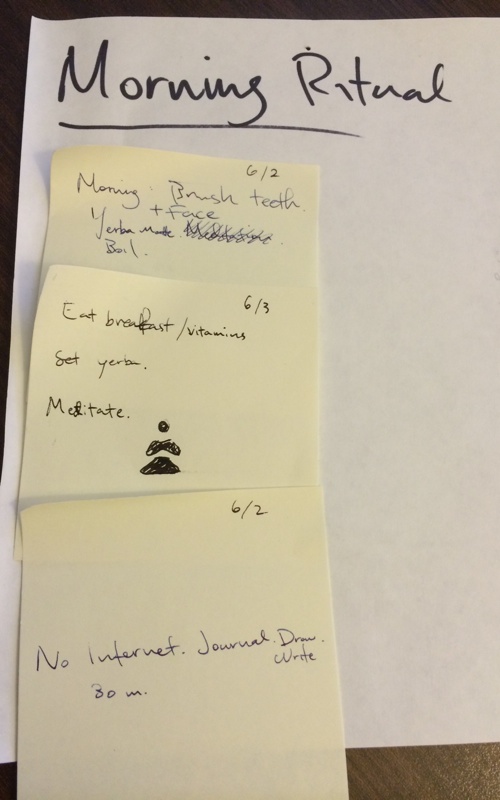 Morning Ritual
6/2
Morning: Brush teeth.
+ Face
Yerba Mate
Boil.
6/3
Eat breakfast/vitamins
Set yerba.
Meditate.
6/2
No Internet. Journal. Draw.
Write
30 m.